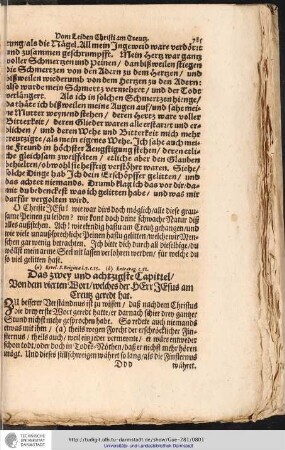 Vom Leiden Christi am Creutz. 785
rung/als die Nägel. All mein Ingeweid ware verdörrt
und zusammen geschrumpfft. Mein Hertz war gantz
voller Schmertzen und Peinen / dan bißweilen stiegen
die Schmertzen von den Adern zu dem Hertzen / und
bißweilen wiederumb von dem Hertzen zu den Adern:
also wurde mein Schmertz vermehret / und der Todt
verlängert. Als ich in solchen Schmertzen hienge/
da thäte ich bißweilen meine Augen auf/und sahe meine
Mutter weynend stehen / deren Hertz ware voller
Bitterkeit / deren Glieder waren alle erstarrt und
/ und deren Wehe und Bitterkeit mich mehr
creutzigte/als mein eigenes Wehe. Ich sahe auch meine
Freund in höchster Aengstigung stehen/ deren etliche
gleichsam zweiffelten / etliche aber den Glauben
behielten/ obwohl sie hefftig verstöhrt waren. Siehe/
solche Dinge hab Ich dein Erschöpffer gelitten / und
das achtet niemands. Drumb klag ich das vor dir/damit
du bedenckest was ich gelitten habe / und was mir
darfür vergolten wird.
O Christe JEsu! wie war dirs doch möglich alle diese grausame
Peinen zu leiden? wie kont doch deine schwache Natur diß
alles außstehen. Ach! wie
wie viele unaußsprechliche Peinen hastu gelitten
Menschen gar wenig betrachten. Ich bitte dich durch all dieselbige/ du
wöllest mein arme Seel nit lassen verlohren werden/ für welche du
so viel gelitten hast.
Das zwey und achtzigste Capittel/
Von dem vierten Wort/welches der HErr JEsus am
Creutz geredt hat.
Zu besserer Verständnus ist zu wissen / daß nachdem Christus
die drey erste Wort geredt hatte/ er darnach schier drey gantzer
Stund nichts mehr gesprochen habe. So redete auch niemands
etwas mit ihm / (a) theils wegen Forcht der erschröcklicher Finsternus
/ theils auch/ weil ein jeder vermeinte / er wäre entweder
schon todt/oder doch in Todts-Nöthen/daß er nichts mehr hören
mögt. Und dieses stillschweigen währet so lang/als die Finsternus
Ddd währet.
TECHNISCHE
UNIVERSITÄT
DARMSTADT
Universitäts- und Landesbibliothek Darmstadt